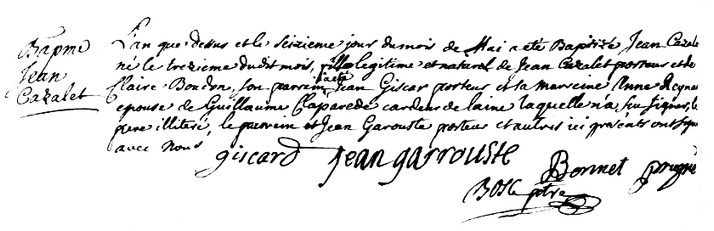 Bapme
Jean
Cazalet
L'an que dessus et le seizieme jour du mois de Mai a eté Baptisé Jean Cazale
né le treizieme dudit mois, fils legitime et naturel de Jean Cazalet porteur et de
Claire Boudon, son parrein a eté Jean Giscar porteur et la marreine Anne
epouse de Guillaume Claparede cardeur de laine laquelle n'a su signer, le
pere illiteré, le parrein et Jean Garouste porteur et autres ici présents ont
avec nous
giscard Jean garrouste
Bonnet
Bosc ptre